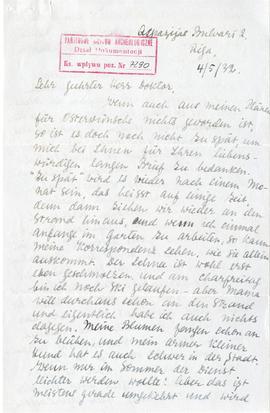 Aspazijas Bulvars 2.
Riga,
4/5/32.
PAŃSTWOWE MUZEUM ARCHEOLOGICZNE
Dział Dokumentacji
Ks. wpływu poz. Nr 7290
Sehr geehrter Herr Doktor,
Wenn auch aus meinen Plänen
für Osterwünsche nichts geworden ist,
so ist es doch noch nicht zu spät, um
mich bei Ihnen für Ihren liebens-
würdigen langen Brief zu bedanken.
"Zu spät" wird es wieder nach einem Mo-
nat sein, das heisst auf einige Zeit,
denn dann ziehen wir wieder an den
Strand hinaus, und wenn ich einmal
anfange im Garten zu arbeiten, so kann
meine Korrespondenz sehen, wie sie allein
auskommt. Der Schnee ist wohl erst
eben geschmolzen, und am Charfreitag
bin ich noch Ski gelaufen - aber Mama
will durchaus schon an den Strand
und eigentlich habe ich auch nichts
dagegen. Meine Blumen fangen schon an
zu blühen, und mein armer kleiner
Hund hat es auch schwer in der Stadt.
Wenn nur im Sommer der Dienst
leichter werden wollte! Aber das ist
meistens gerade umgekehrt und wird